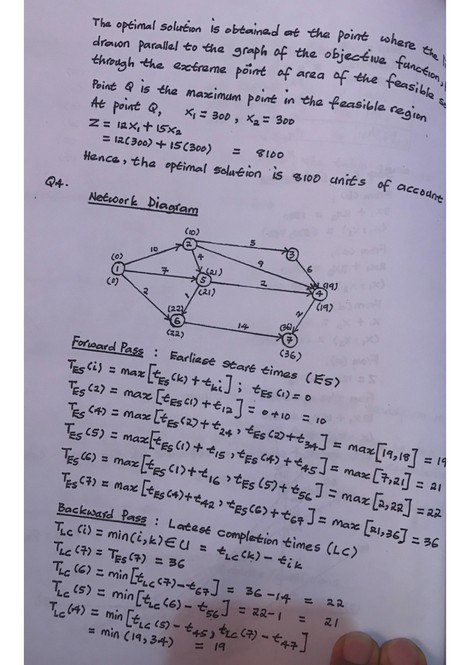 The optimal solution is obtained at the point where the
drawn parallel to the graph of the objective function,
through the extreme point of area of the feasible
Point Q is the maximum point in the feasible region
At point Q, x₁ = 300, x₂ = 300
Z = 12x₁ + 15x₂
= 12(300) + 15(300) = 8100
Hence, the optimal solution is 8100 units of account
Q4.
Network Diagram
(10)
2 5 3
(0) 10 4 9 6
1 7 5 (21) 2 4 (19)
(0) (21) (19)
2 1 2
(22) 6 14 (36) 7
(22) (36)
Forward Pass : Earliest start times (ES)
TES(i) = max[tES(k) + tki] ; tES(1) = 0
TES(2) = max[tES(1) + t12] = 0+10 = 10
TES(4) = max[tES(2) + t24, tES(2) + t34] = max[19,18] = 19
TES(5) = max[tES(1) + t15, tES(4) + t45] = max[7,21] = 21
TES(6) = max[tES(1) + t16, tES(5) + t56] = max[2,22] = 22
TES(7) = max[tES(4) + t42, tES(6) + t67] = max[21,36] = 36
Backward Pass : Latest completion times (LC)
TLC(i) = min(i,k)∈U = tLC(k) - tik
TLC(7) = TES(7) = 36
TLC(6) = min[tLC(7) - t67] = 36-14 = 22
TLC(5) = min[tLC(6) - t56] = 22-1 = 21
TLC(4) = min[tLC(5) - t45, tLC(7) - t47]
= min(19,34) = 19